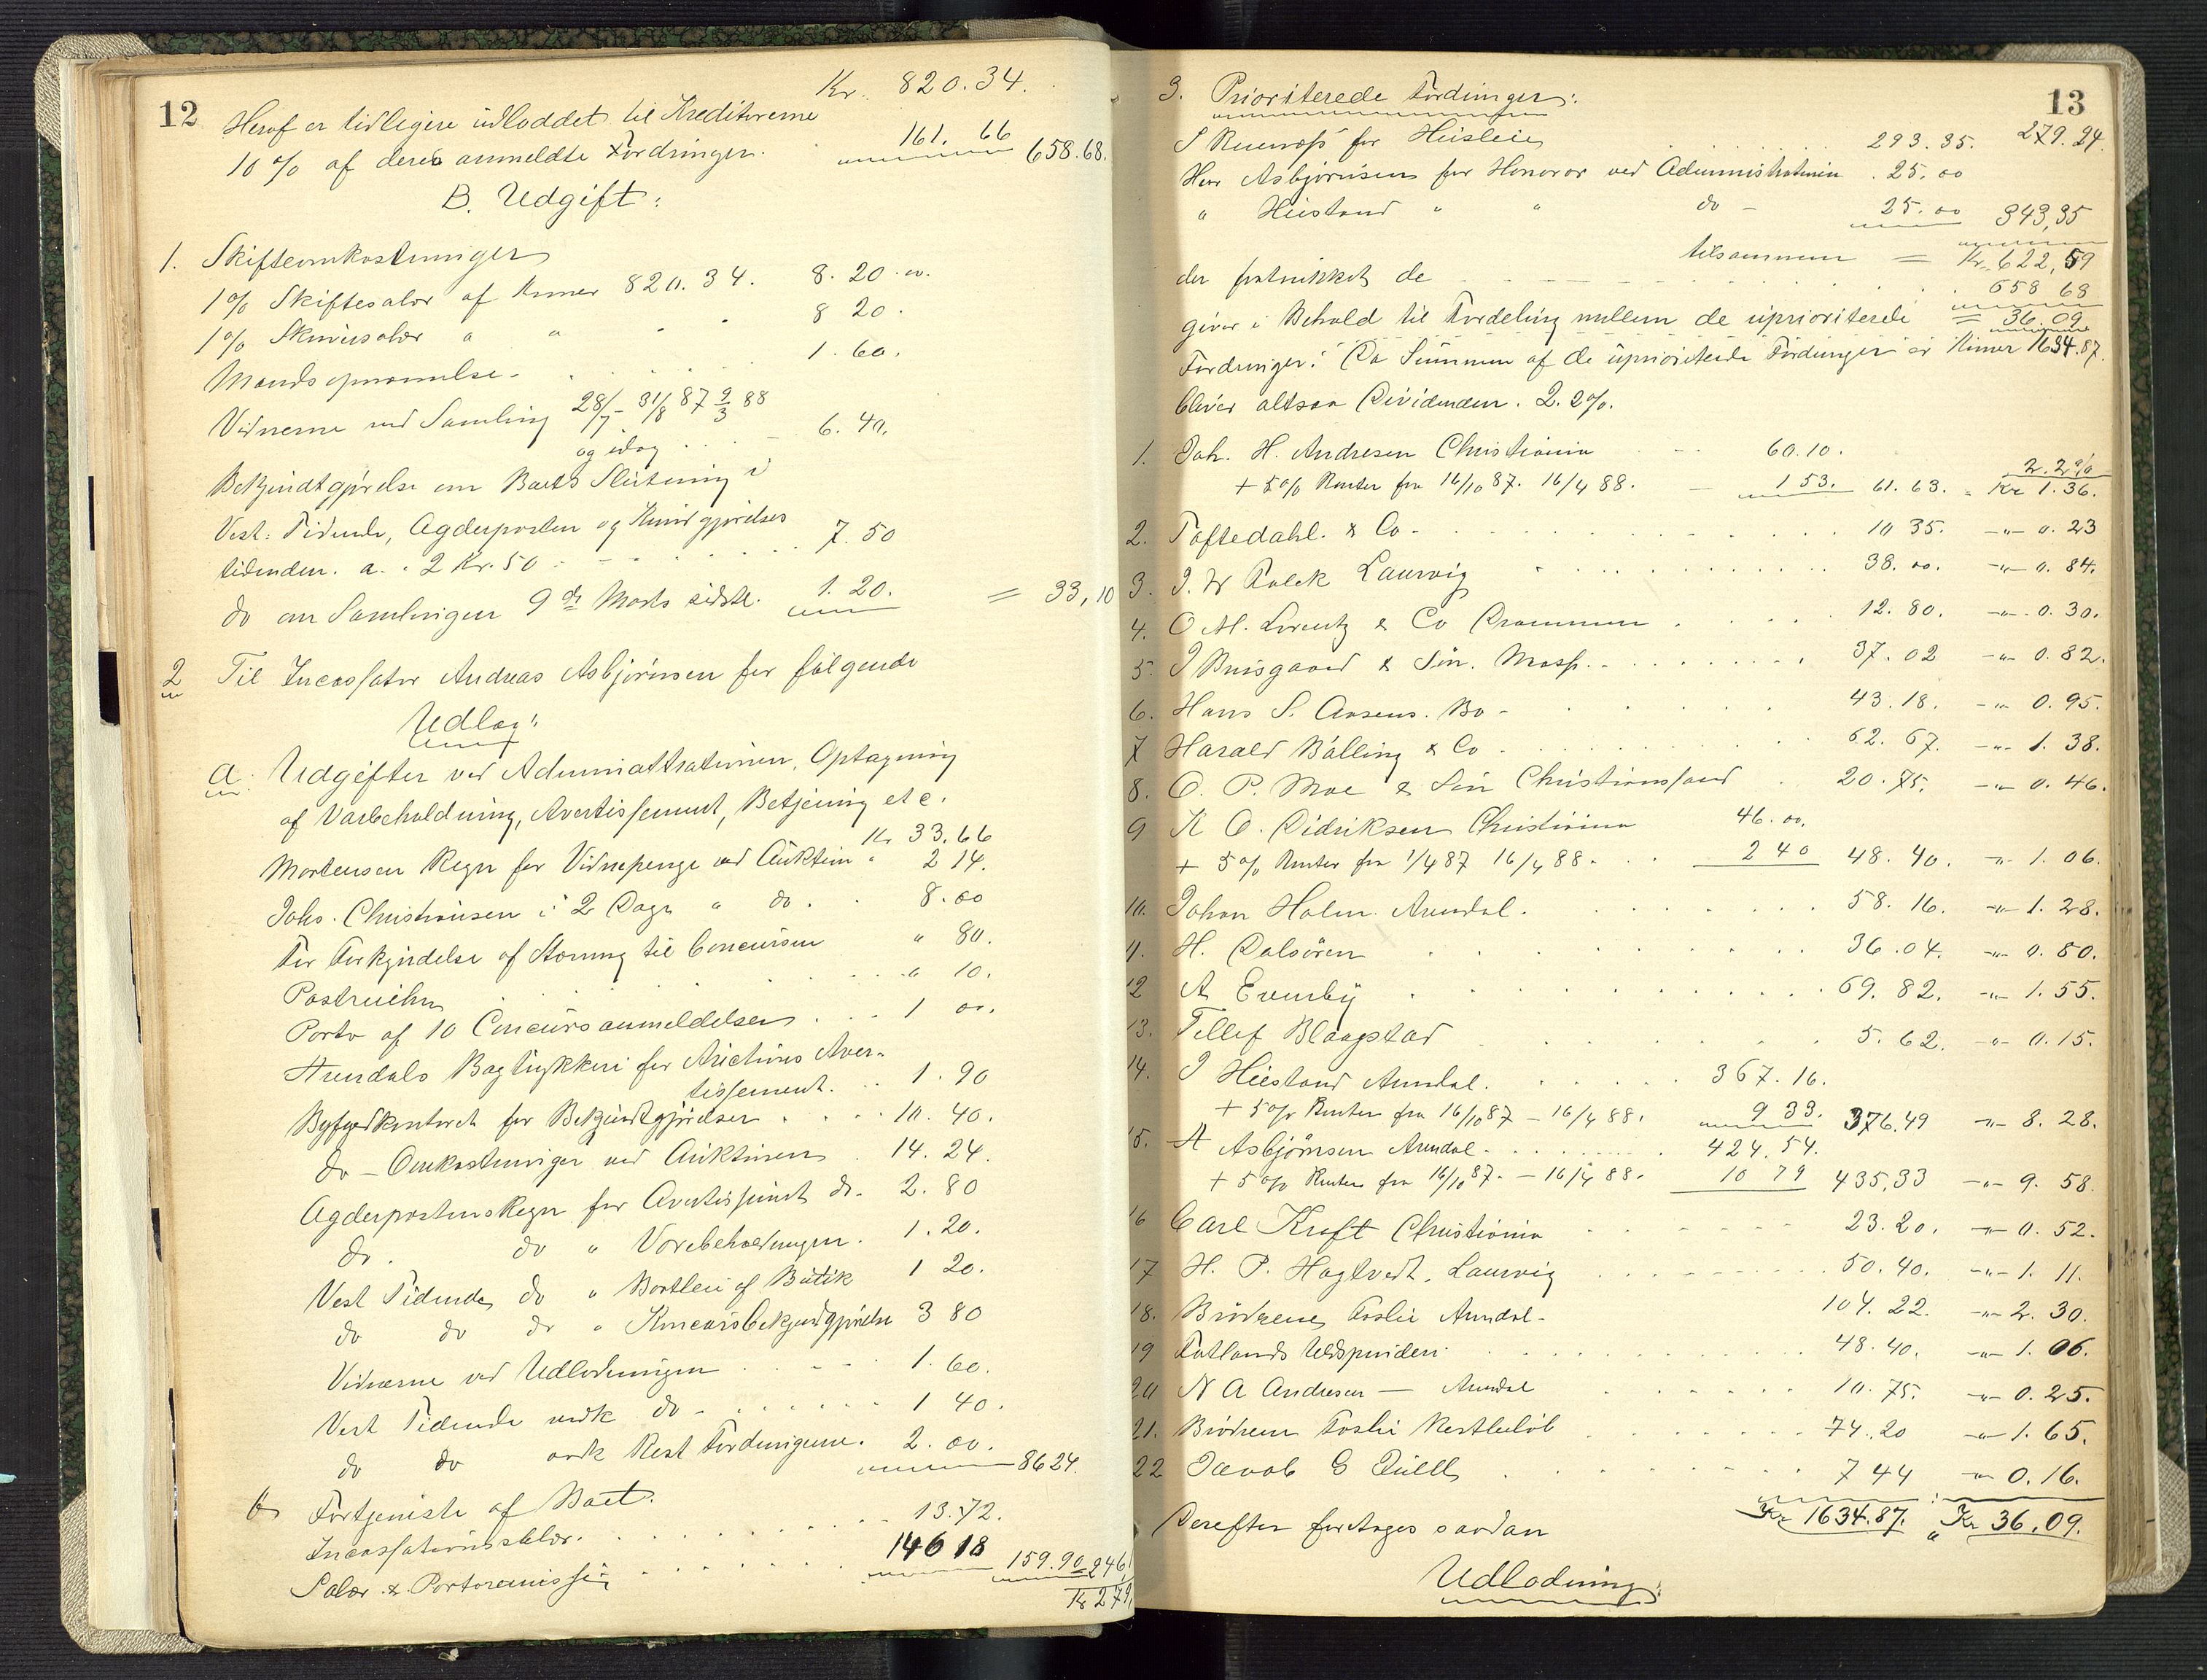 12
Kr. 820.34.
Heraf er tidligere udloddet til Kreditorerne
10 % af deres anmeldte Fordringer. 161. 66 658.68.
B. Udgift:
1. Skifteomkostninger
1% Skiftesalær af Kroner 820.34. 8. 20.
1% Skriversalær " " 8 20.
Mandsopnævnelse. 1. 60.
Vidnerne ved Samling 28/7 - 31/8 87 9/3 88
og idag 6. 40.
Bekjendtgjørelse om Boets Slutning i
Vest: Tidende, Agderposten og Kundgjørelses
tidenden. a. 2 Kr. 50 7. 50
do om Samlingen 9de Marts sidstl. 1. 20. = 33,10
2 Til Incassator Andreas Asbjørnsen for følgende
Udlæg:
a. Udgifter ved Administrationen, Optagning
af Varebeholdning, Avertissement, Betjening etc.
Kr 33.66
Mortensen Regn for Vidnepenge ved Auktion " 2 14.
Johs. Christiansen i 2 Dage " do. 8.00
For Forkyndelse af Stævning til Concursen " 80.
" 10.
Porto af 10 Concursanmeldelser 1 00.
Arendals Bogtrykkeri for Auctions Aver-
tissement. 1. 90
Byfogdkontoret for Bekjendtgjørelser 10. 40.
do - Omkostninger ved Auktionen 14. 24.
Agderpostens Regn for Avertissement do. 2. 80
do. do " Varebeholdningen. 1. 20.
Vest Tidende do " Bortleie af Butik 1 20.
do do do " Concursbekjendtgjørelse 3 80
Vidnerne ved Udlodningen 1. 60.
Vest Tidende vedk do 1 40.
do do vedk Rest Fordringerne. 2. 00. 8624.
b Fortjeneste af Boet.
Incassationssalær. 13.72.
Salær & 146 18 159.90 = 246,
Kr 279,
13
3. Prioriterede Fordringer: 279.24.
S for Husleie 293.35.
Herr Asbjørnsen for Honorar ved Administrationen 25.00
" Hiistand " " do - 25.00 343,35
tilsammen = Kr. 622,59
der fratrukket de 658 68
giver i Behold til Fordeling mellem de uprioriterede = 36.09
Fordringer. Da Summen af de uprioriterede Fordringer er Kroner 1634.87.
bliver altsaa Dividenden. 2.2%.
1. Joh. H. Andresen Christiania 60.10. 2.2%
+ 5% Renter fra 16/10 87. 16/4 88. 1 53. 61.63. = Kr 1.36.
2. Toftedahl. & Co. 10 35. -"- 0.23
3. J. W Laurvig 38.00. -"- 0.84.
4. O M. Lorentz & Co Drammen 12.80. -"- 0.30.
5. & Søn. Moss. 37.02 -"- 0.82.
6. Hans S. Aasens. Bo 43.18. -"- 0.95.
7 Harald Bålling & Co 62.67. -"- 1.38.
8. O. P. Moe & Søn Christianssand 20.75. -"- 0.46.
9 K O. Didriksen Christiania 46.00.
+ 5% Renter fra 1/4 87 16/4 88. 2 40 48.40. -"- 1.06.
10. Johan Holm. Arendal. 58.16. -"- 1.28.
11. H. Dalsøren 36.04. -"- 0.80.
12 A Evenby 69.82. -"- 1.55.
13. Tellef Blaagstad 5.62. -"- 0.15.
14. J Hiistand Arendal. 367.16.
+ 5% Renter fra 16/10 87 - 16/4 88. 9 33. 376.49 -"- 8.28.
15. A Asbjørnsen Arendal. 424.54.
+ 5% Renter fra 16/10 87. - 16/4 88. 10 79 435,33 -"- 9.58.
16 Carl Kraft Christiania 23.20. -"- 0.52.
17 H. P. Hagtvedt, Laurvig 50.40. -"- 1.11.
18. Brødrene Foslie Arendal- 104.22. -"- 2.30.
19 Fatlands Uldspinderi 48.40. -"- 1.06.
20 N A Andresen - Arendal 10.75. -"- 0.25.
21. Brødrene Foslie Restbeløb 74.20 -"- 1.65.
22 Jacob G 7 44 -"- 0.16.
Kr 1634.87. Kr 36.09.
Derefter foretoges saadan
Udlodning: